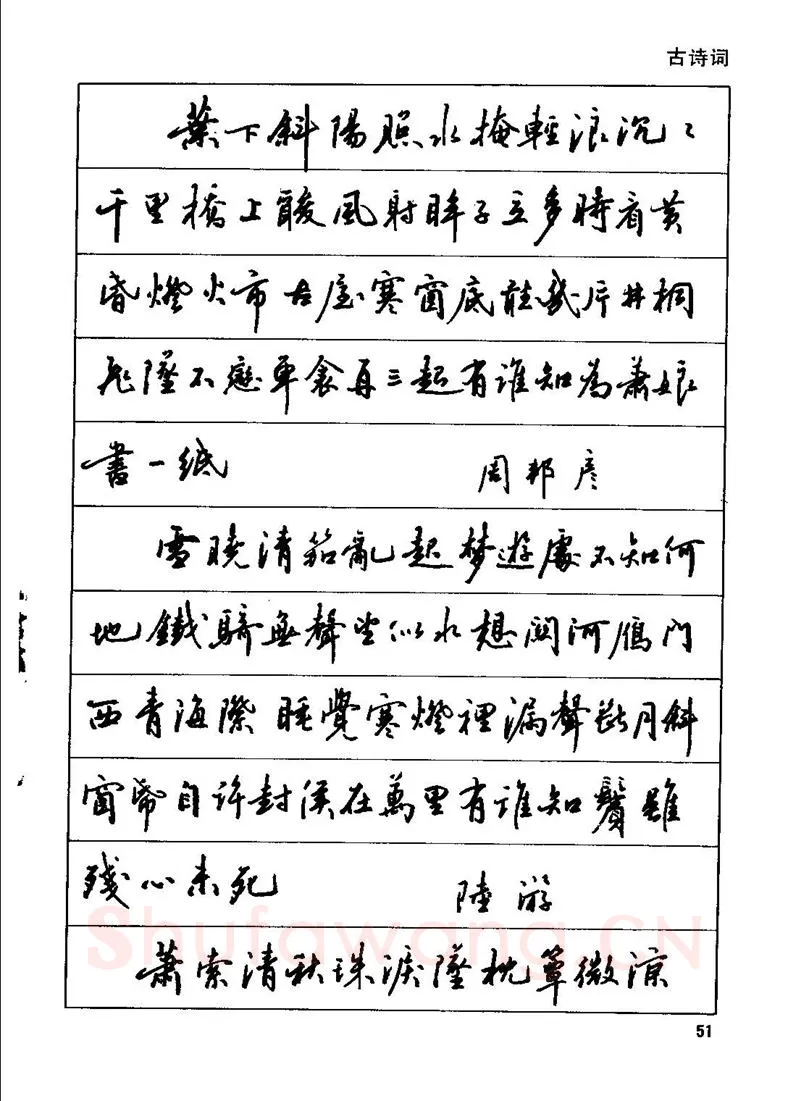 古诗词
葉下斜陽照水捲輕浪沉々
千里橋上酸風射眸子立多時看黄
昏燈火市古屋寒窗底聽幾片井桐
飛墜不戀單衾再三起有誰知為蕭娘
書一紙 周邦彦
雪曉清笳亂起夢遊處不知何
地鐵騎無聲望似水想關河雁門
西青海際睡覺寒燈裡漏聲斷月斜
窗紙自许封侯在萬里有誰知鬢雖
殘心未死 陸游
蕭索清秋珠淚墜枕簟微涼
Shufawang.CN
51